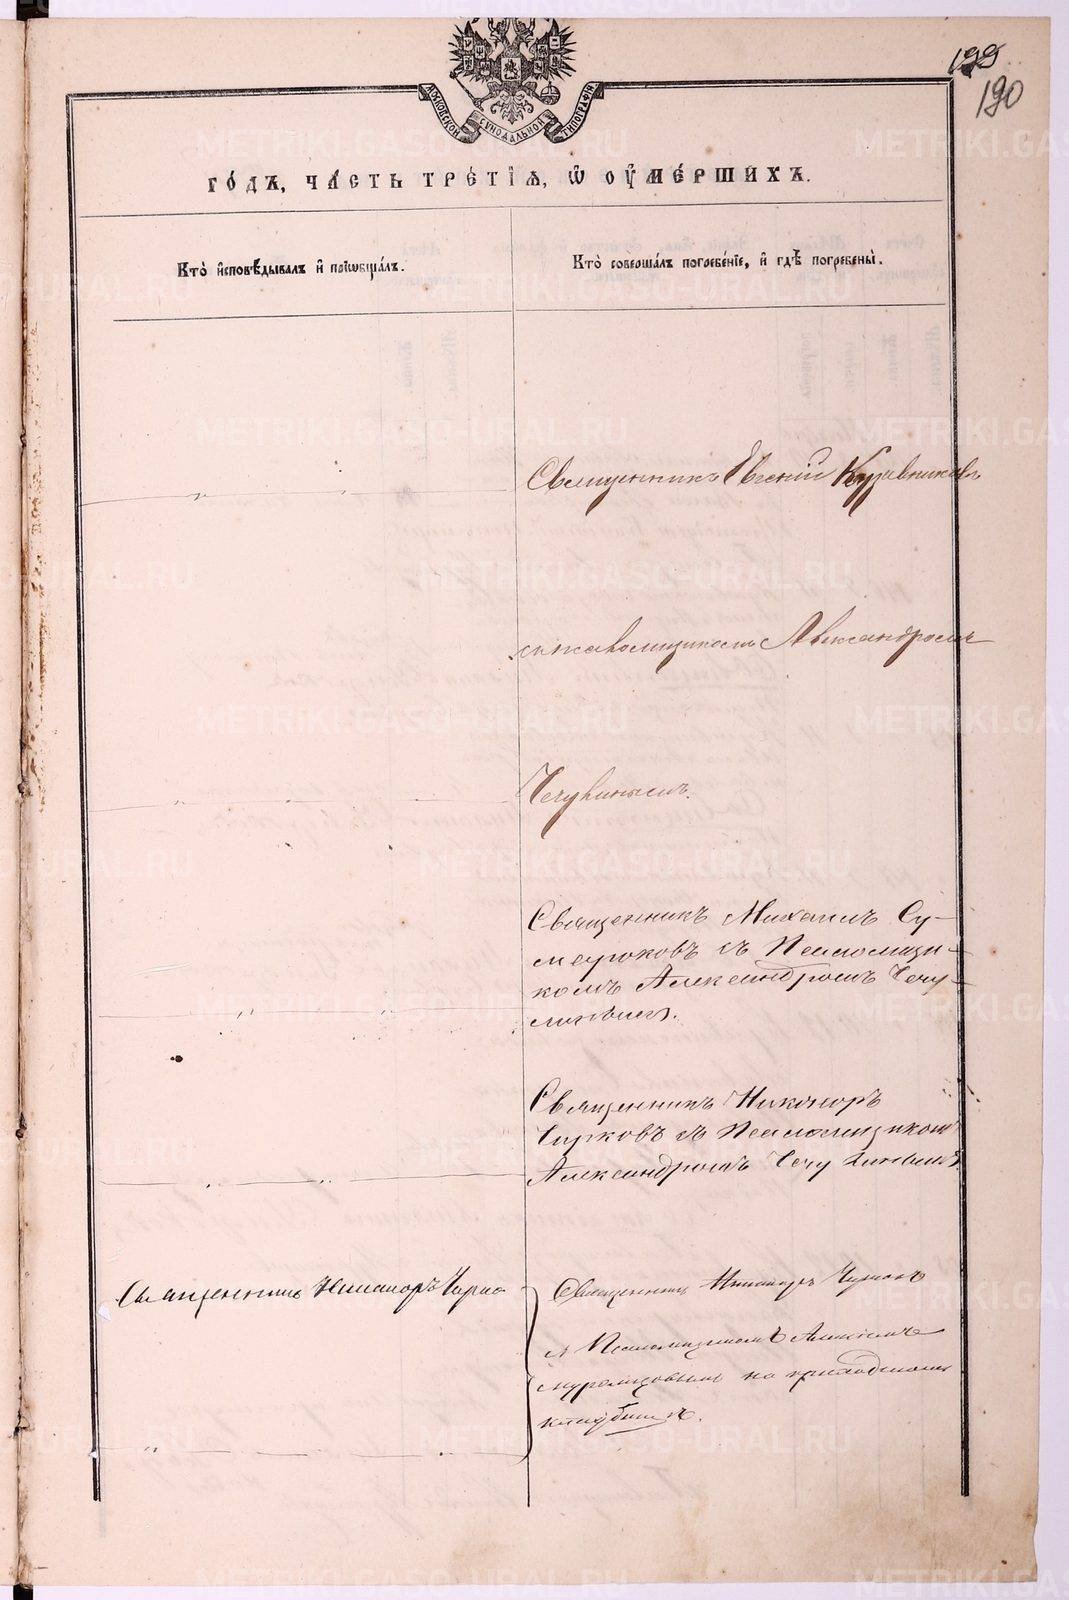 199
190
МОСКОВСКОЙ СѴНОДАЛЬНОЙ ТИПОГРАФІИ
ГО́ДЪ, ЧА́СТЬ ТРЕ́ТІѦ, Ѡ҆ ОУ҆МЕ́РШИХЪ.
Кто̀ и҆сповѣ́дывалъ и҆ прїѡбща́лъ.
Кто̀ соверша́лъ погребе́нїе, и҆ гдѣ̀ погребены̀.
Священникъ Евгеній
псаломщикомъ Александромъ
Священникъ Михаилъ Су-
мороковъ съ Псаломщи-
комъ Александромъ Чечу-
линымъ.
Священникъ Никоноръ
Чирковъ съ Псаломщикомъ
Александромъ Чечулинымъ
Священникъ Никаноръ Чирко
Священникъ Никаноръ
съ Псаломщикомъ
на приходскомъ
кладбищѣ.
METRIKI.GASO-URAL.RU